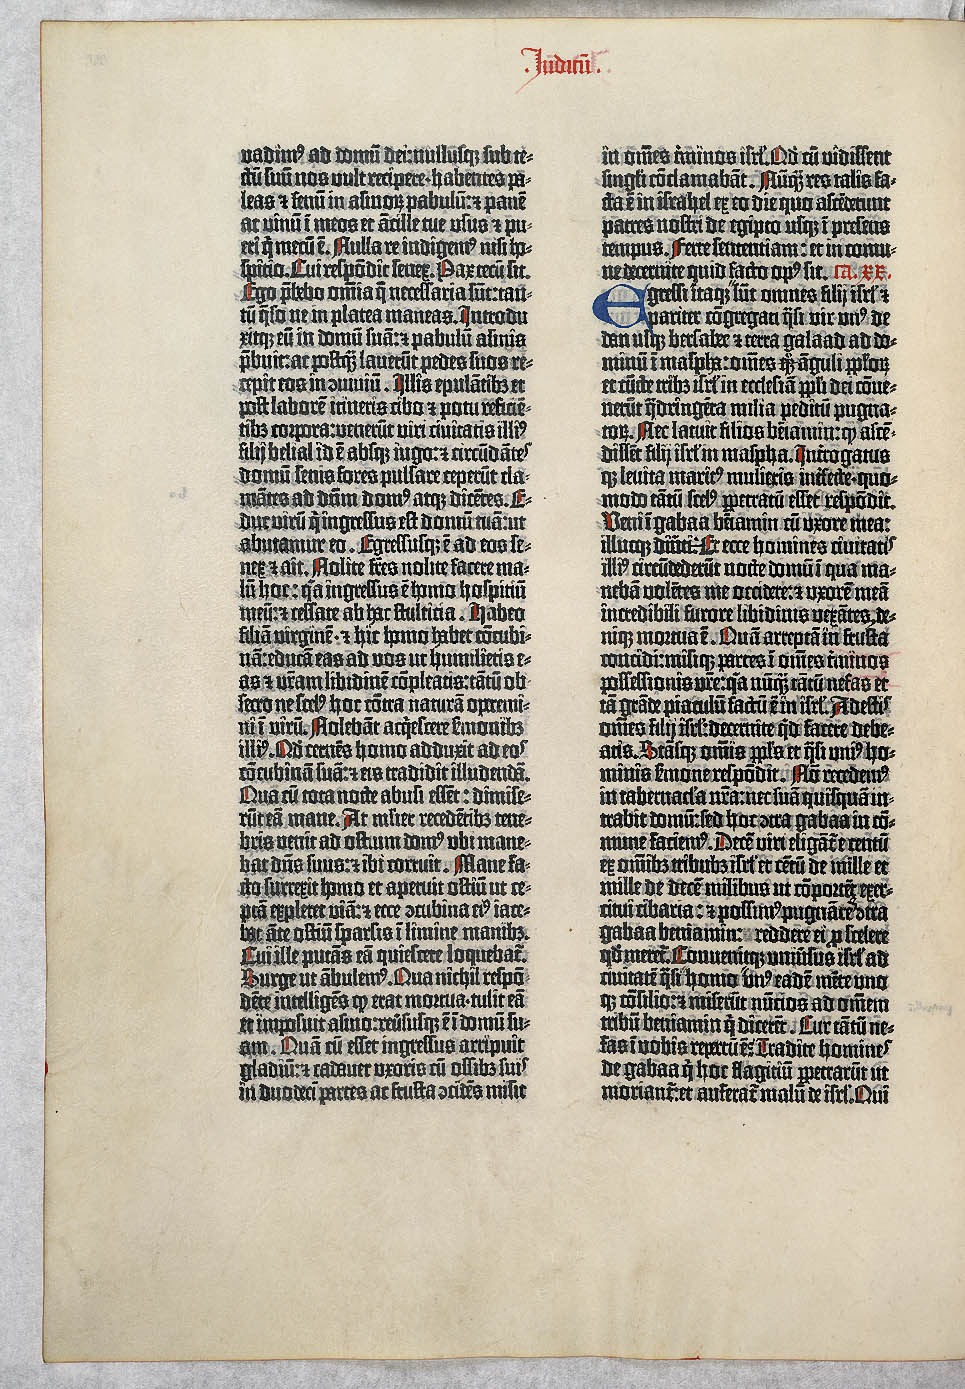 .Iudicū.
vadimꝰ ad domū dei: nullusqꝫ sub te-
ctū suū nos vult recipere· habentes pa-
leas ⁊ fenū in asinoꝝ pabulū: ⁊ panē
ac vinū ī meos et ācille tue vsus ⁊ pu-
eri q̄ mecū ē. Nulla re indigemꝰ nisi ho-
spicio. Cui respōdit senex. Pax tecū sit.
Ego p̄bebo om̄ia q̄ necessaria sūt: tan-
tū q̄so ne in platea maneas. Introdu
xitqꝫ eū in domū suā: ⁊ pabulū asinis
p̄buit: ac postqꝫ̄ lauerūt pedes suos re-
cepit eos in ↄuiuiū. Illis epulātibꝫ et
post laborē itineris cibo ⁊ potu reficiē-
tibꝫ corpora: venerūt viri ciuitatis illiꝰ
filij belial id ē absqꝫ iugo: ⁊ circūdātes
domū senis fores pulsare ceperūt cla-
mātes ad dn̄m domꝰ atqꝫ dicētes. E-
duc virū q̄ ingressus est domū tuā: ut
abutamur eo. Egressusqꝫ ē ad eos se-
nex ⁊ ait. Nolite fr̄es nolite facere ma-
lū hoc: q̄a ingressus ē homo hospitiū
meū: ⁊ cessate ab hac stulticia. Habeo
filiā virginē· ⁊ hic homo habet cōcubi-
nā: educā eas ad vos ut humilietis e-
as ⁊ vr̄am libidinē cōpleatis: tātū ob-
secro ne scelꝰ hoc cōtra naturā opremi-
ni ī virū. Nolebāt acq̄escere s̄monibꝫ
illiꝰ. Qd̄ cernēs homo adduxit ad eos
cōcubinā suā: ⁊ eis tradidit illudendā.
Qua cū tota nocte abusi essēt: dimise-
rūt eā mane. At mlier recedētibꝫ tene-
bris venit ad ostium domꝰ vbi mane-
bat dn̄s suus: ⁊ ibi corruit. Mane fa-
cto surrexit homo et aperuit ostiū ut ce-
ptā expleret viā: ⁊ ecce ↄcubina eiꝰ iace-
bat āte ostiū sparsis ī limine manibꝫ.
Cui ille putās eā quiescere loquebat̄.
Surge ut ābulemꝰ. Qua nichil respō-
dēte intelligēs ꝙ erat mortua· tulit eā
et imposuit asino: reūsusqꝫ ē ī domū su-
am. Quā cū esset ingressus arripuit
gladiū: ⁊ cadauer vxoris cū ossibꝫ suis
in duodecī partes ac frusta ↄcidēs misit
in om̄es t̄minos isrl̄. Qd̄ cū vidissent
singli cōclamabāt. Nūqꝫ̄ res talis fa-
cta ē in israhel ex eo die quo ascēderunt
patres nostri de egipto usqꝫ ī presens
tempus. Ferte sententiam: et in comu-
ne decernite quid facto opꝰ sit. Ca. XX.
Egressi itaqꝫ sūt omnes filij isrl̄ ⁊
pariter cōgregati q̄si vir vnꝰ de
dan usqꝫ bersabee ⁊ terra galaad ad do-
minū ī maspha: om̄es qꝫ āguli pploꝝ
et cūcte tribꝫ isrl̄ in ecclesiā ppli dei cōue-
nerūt q̄dringēta milia peditū pugna-
toꝝ. Nec latuit filios bēiamin: ꝙ ascē-
dissēt filij isrl̄ in maspha. Introgatus
qꝫ leuita maritꝰ mulieris int̄fecte· quo-
modo tātū scelꝰ ꝑpetratū esset respōdit.
Veni ī gabaa bēiamin cū vxore mea:
illucqꝫ diūti: Et ecce homines ciuitatis
illiꝰ circūdederūt nocte domū ī qua ma-
nebā volētes me occidere: ⁊ vxorē meā
incredibili furore libidinis vexātes, de-
niqꝫ mortua ē. Quā arreptā in frusta
concidi: misiqꝫ partes ī om̄es t̄minos
possessionis vr̄e: q̄a nūqꝫ̄ tātū nefas et
tā grāde piaculū factū ē in isrl̄. Adestis
om̄es filij isrl̄: decernite q̄d facere debe-
atis. Stāsqꝫ om̄is ppl̄s et q̄si vniꝰ ho-
minis s̄mone respōdit. Nō recedemꝰ
in tabernacl̄a nr̄a: nec suā quisquā in-
trabit domū: sed hoc ↄtra gabaa in cō-
mune faciemꝰ. Decē viri eligāt̄ e centū
ex om̄ibꝫ tribubꝫ isrl̄ et cētū de mille et
mille de decē milibus ut cōportēt exer-
citui cibaria: ⁊ possimꝰ pugnare ↄtra
gabaa beniamin: reddere ei ꝓ scelere
qd̄ meret̄. Conuenitqꝫ vniūsus isrl̄ ad
ciuitatē q̄si homo vnꝰ eadē mēte vno
qꝫ cōsilio: ⁊ miserūt nūcios ad omnem
tribū beniamin q̄ dicerēt. Cur tātū ne-
fas ī vobis repertū ē: Tradite homines
de gabaa q̄ hoc flagitiū ꝑpetrarūt ut
moriant̄: et auferat̄ malū de isrl̄. Qui